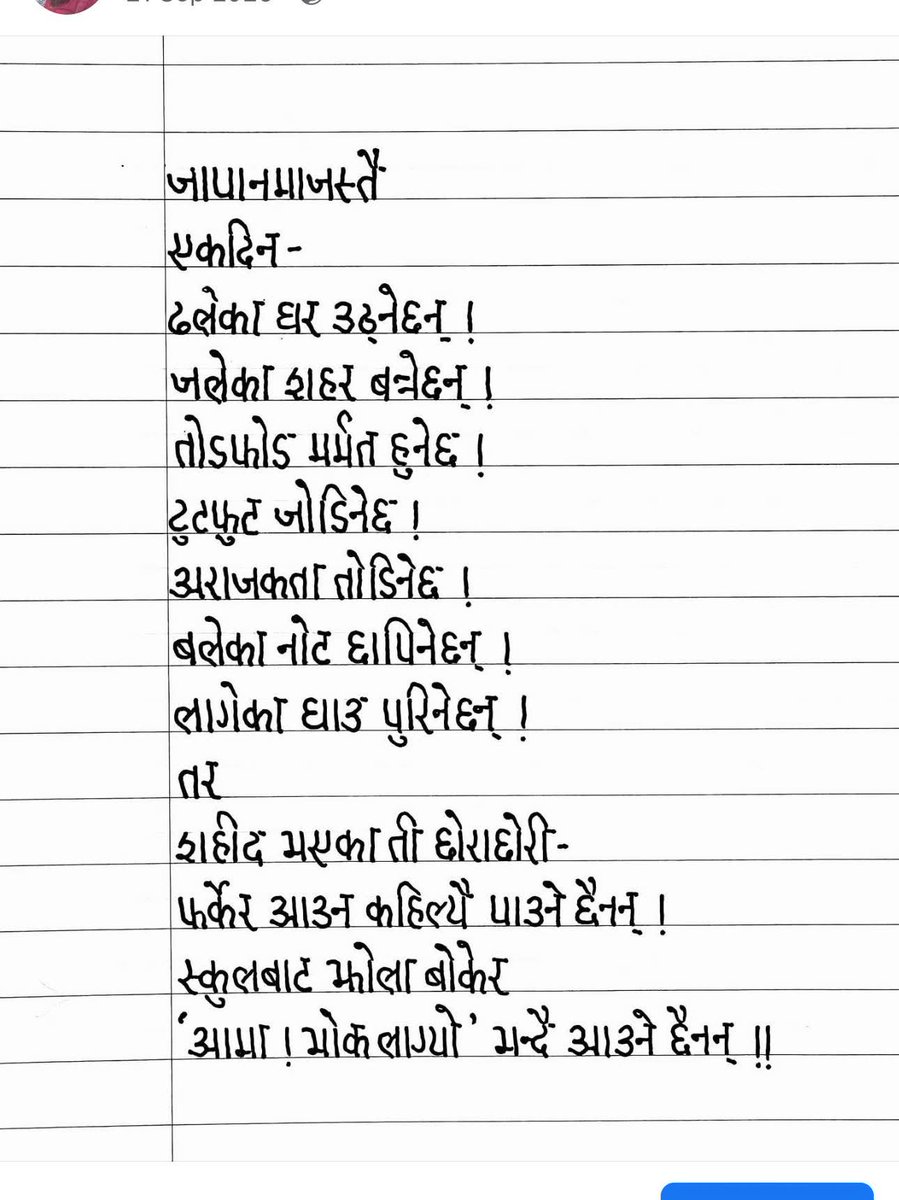 जापानमाजस्तै
एकदिन-
ढलेका घर उठ्नेछन् !
जलेका शहर बन्नेछन् !
तोडफोड मर्मत हुनेछ !
टुटफुट जोडिनेछ !
अराजकता तोडिनेछ !
बलेका नोट छापिनेछन् !
लागेका घाउ पुरिनेछन् !
तर
शहीद भएका ती छोराछोरी-
फर्केर आउन कहिल्यै पाउने छैनन् !
स्कुलबाट झोला बोकेर
‘आमा ! भोक लाग्यो’ भन्दै आउने छैनन् !!